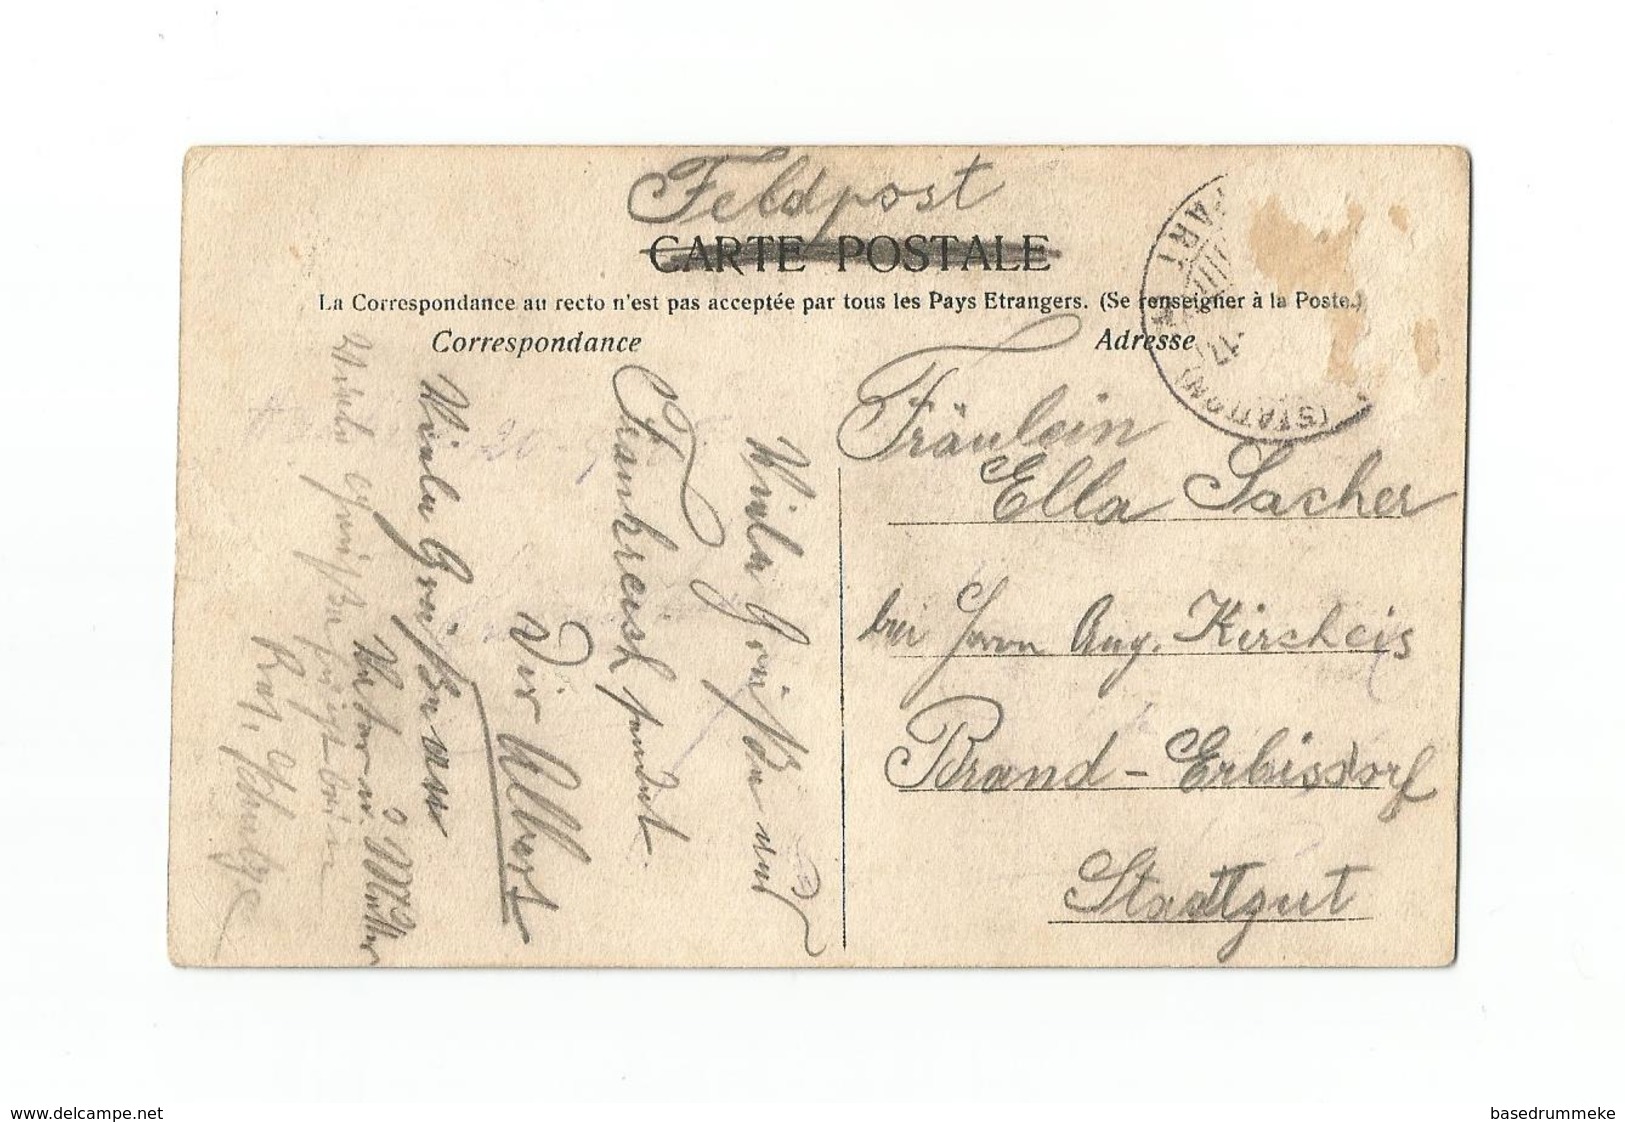 Feldpost
CARTE POSTALE
La Correspondance au recto n'est pas acceptée par tous les Pays Etrangers. (Se renseigner à la Poste.)
Correspondance
Adresse
ART
(STATION)
17
Fräulein
Ella Sacher
bei Herrn Aug. Kirscheis
Brand-Erbisdorf
Stadtgut
Viele Grüße aus
Frankreich sendet
Dir Albert
Viele Grüße von
u. Mutter
Viele Grüße
www.delcampe.net
basedrummeke